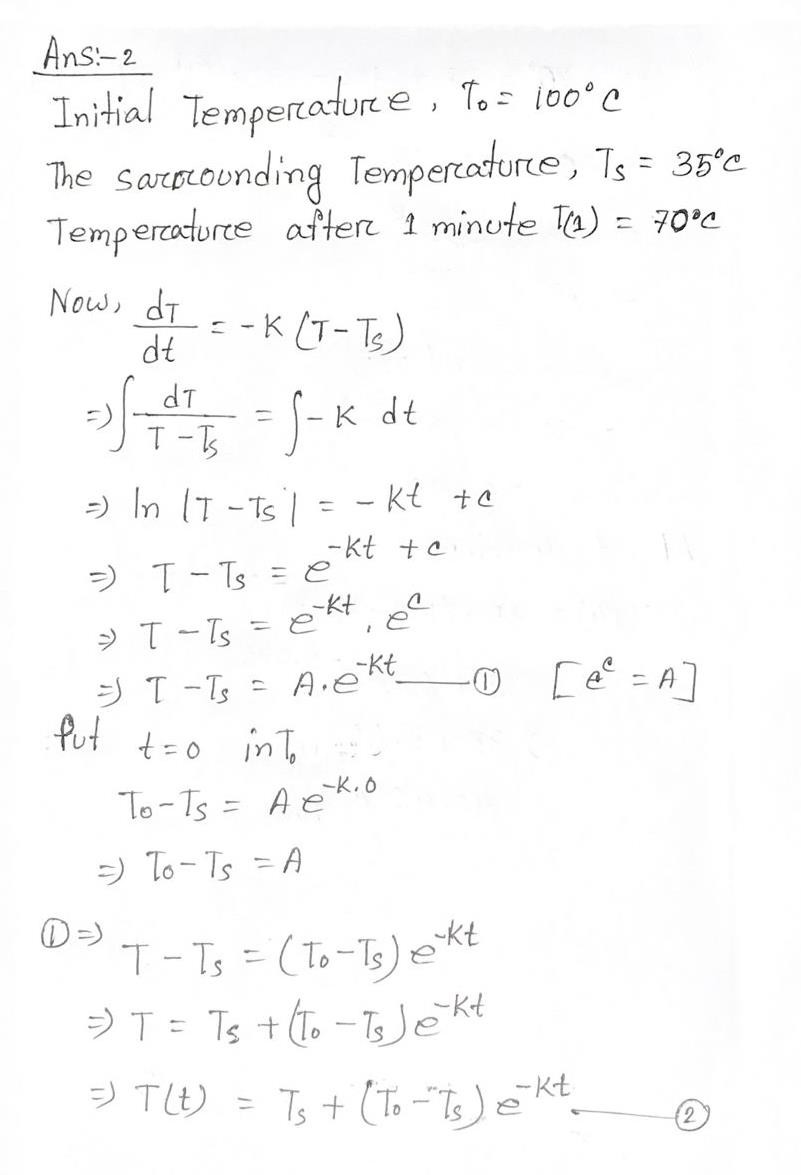 Ans:-2
Initial Temperature, T₀ = 100°C
The sarrounding Temperature, Ts = 35°C
Temperature after 1 minute T(1) = 70°C
Now, dT/dt = -K (T-Ts)
=> ∫ dT/(T-Ts) = ∫-K dt
=> ln |T-Ts| = -kt +c
=> T-Ts = e^(-kt +c)
=> T-Ts = e^(-kt) . e^c
=> T-Ts = A.e^(-kt) —— ① [e^c = A]
Put t=0 in T₀
T₀-Ts = A e^(-K.0)
=> T₀-Ts = A
①=> T-Ts = (T₀-Ts) e^(-kt)
=> T = Ts + (T₀-Ts) e^(-kt)
=> T(t) = Ts + (T₀-Ts) e^(-kt) —— ②